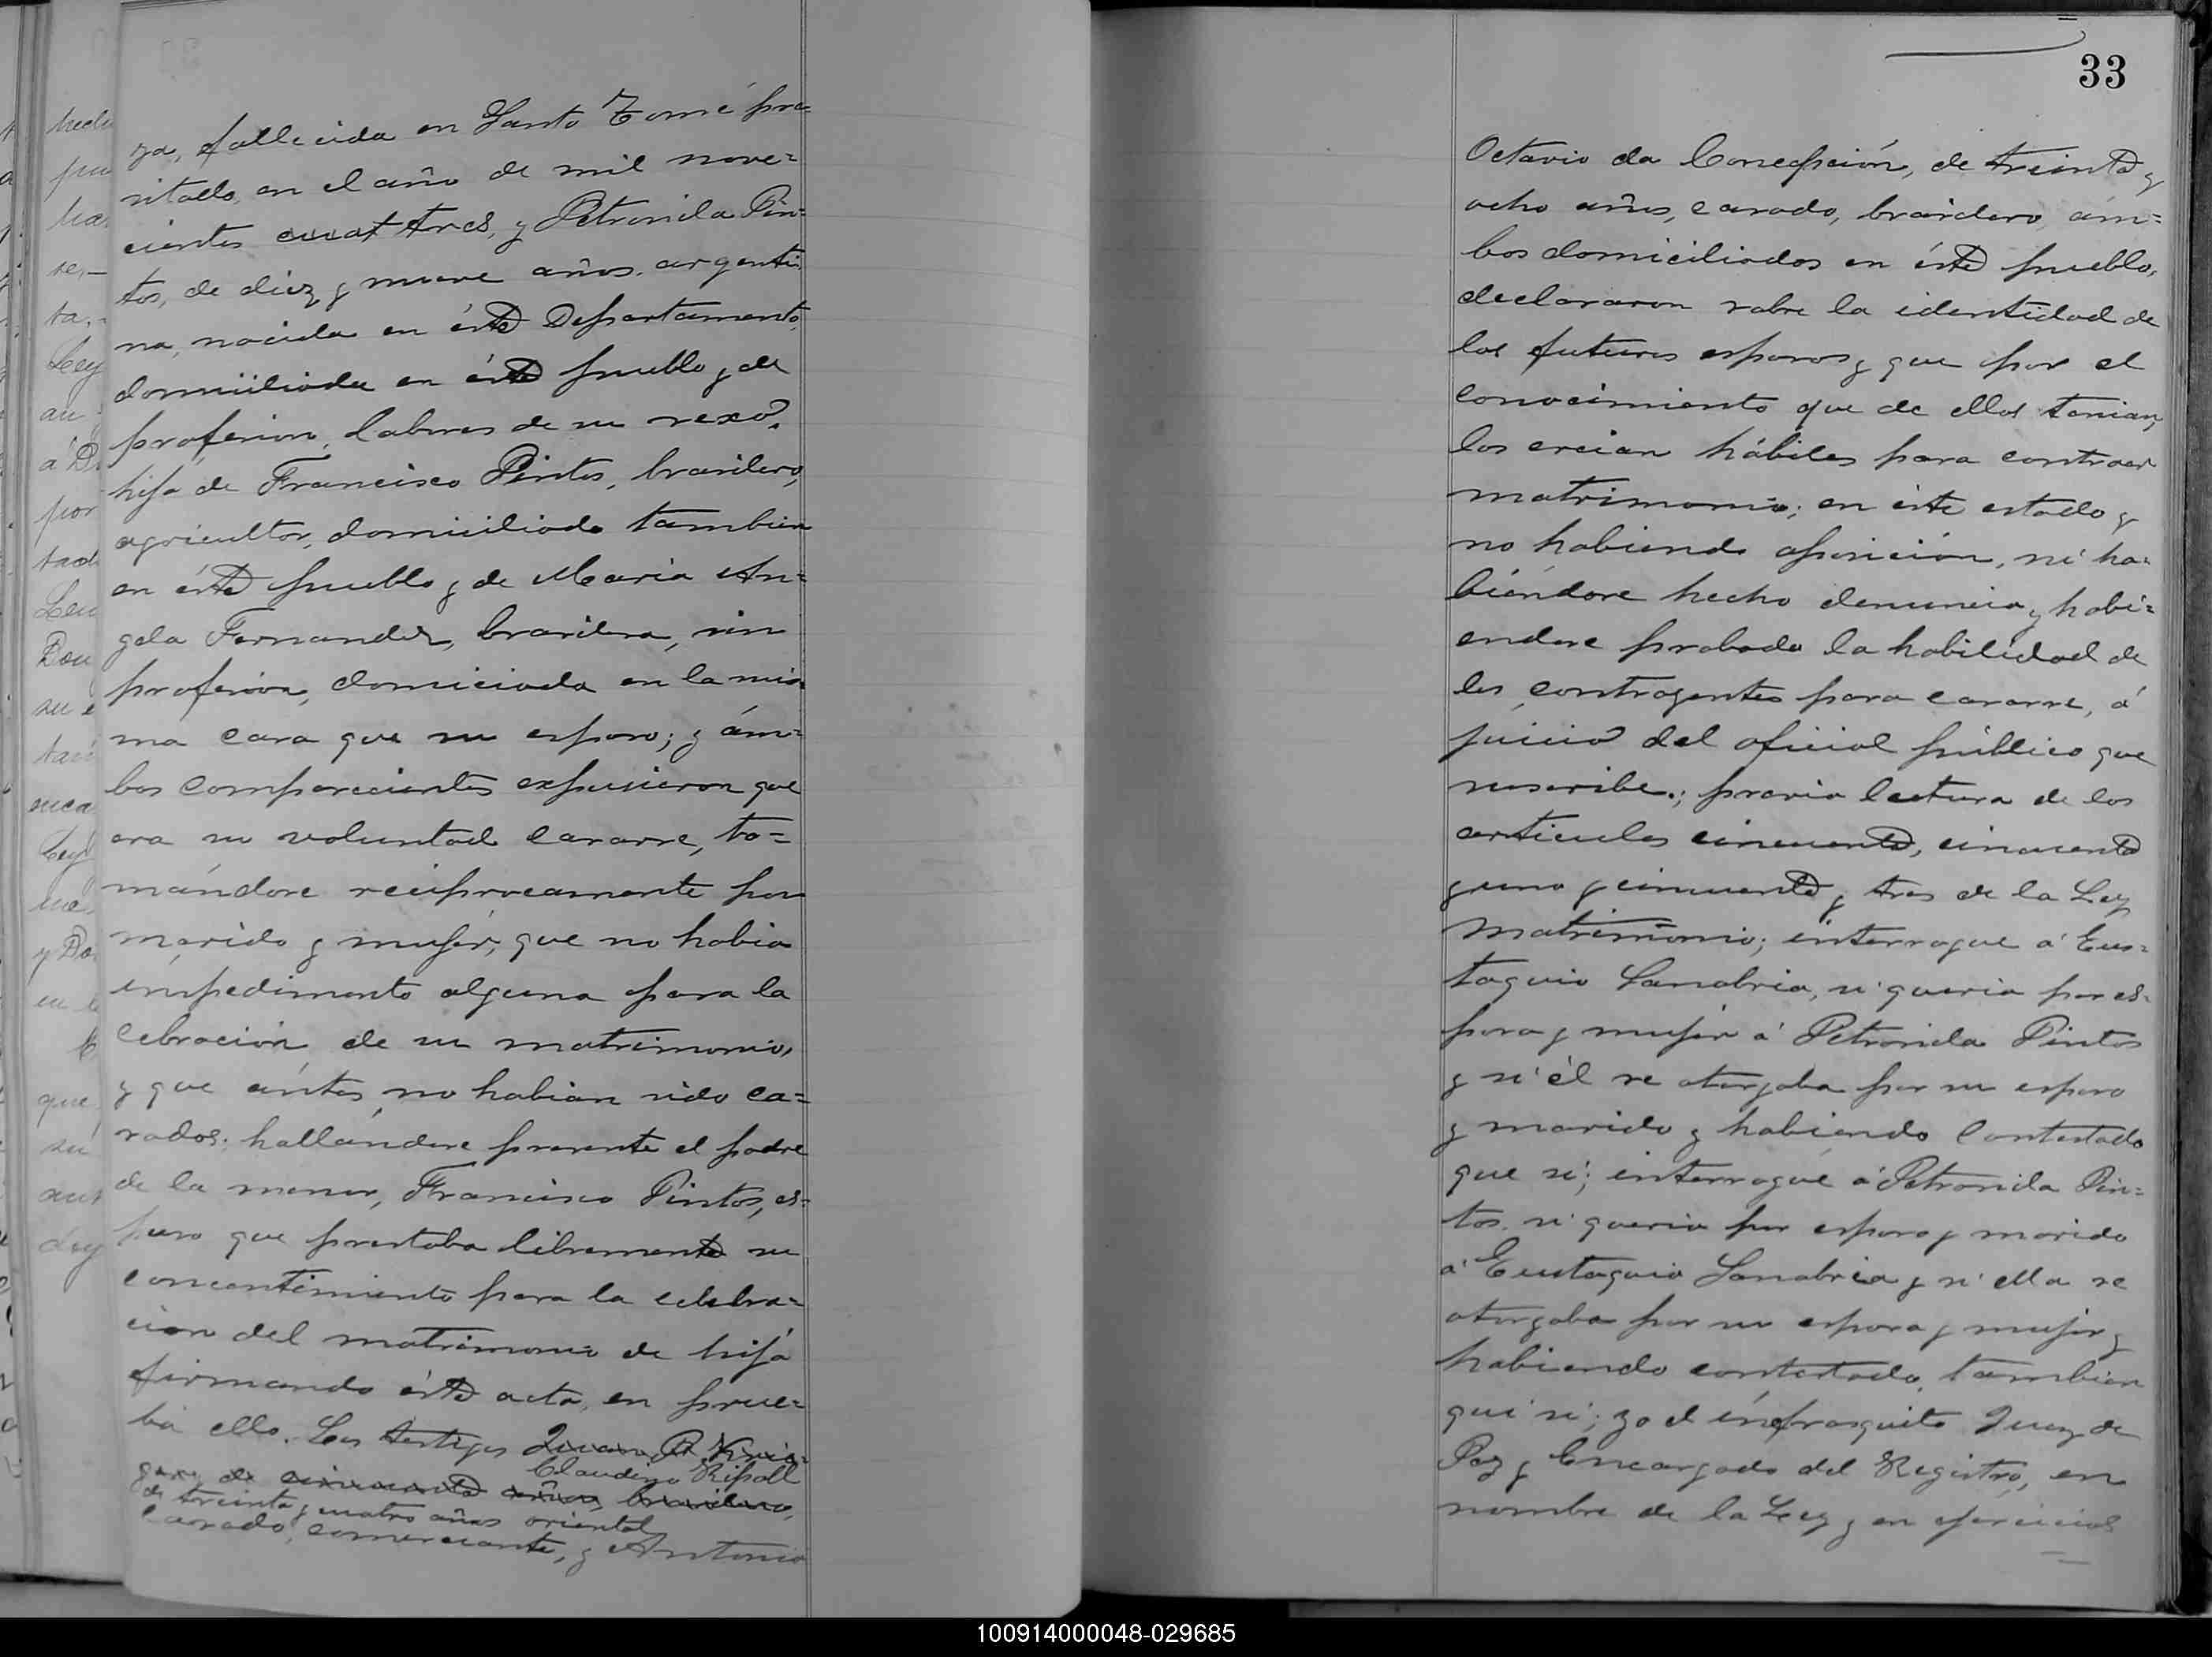 za, fallecida en Santo Tomé pre-
citado, en el año de mil nove=
cientos cuat tres, y Petronila Pin=
tos, de diez y nueve años, argenti
na, nacida en ésta Departamento,
domiciliada en ésta pueblo y de
profesion, labores de su sexo,
hija de Francisco Pintos, brasilero,
agricultor, domiciliado tambien
en ésta pueblo y de Maria An=
gela Fernandez, brasilera, sin
profesion, domiciada en la mis
ma casa que su esposo; y ám=
bos comparecientes expusieron que
era su voluntad casarse, to=
mándose reciprocamente por
marido y mujér, que no habia
impedimento alguna para la
cebración de su matrimonio,
y que ántes no habian sido ca=
sados; hallándose presente el padre
de la menor, Francisco Pintos, es=
puso que prestaba libremente su
concentimiento para la celebra=
cion del matrimonio de hija
firmando ésta acta, en prue=
ba ello. Los testigos Juan P.
Claudino Ripoll
de cincuenta años, brasilero,
de treinta y cuatro años oriental
casado, comerciante, y Antonio
33
Octavio da Concepción, de treinta y
ocho años, casado, brasilero, ám=
bos domiciliados en ésta pueblo,
declararon sobre la identidad de
los futuros esposos y que por el
conocimiento que de ellos tenian,
los creian hábiles para contraer
matrimonio; en éste estado y
no habiendo oposición, ni ha=
biéndose hecho denuncia y habi=
endose probado la habilidad de
los contragentes para casarse, á
juicio del oficial público que
suscribe.; previa lectura de los
articulos cincuenta, cincuenta
y uno y cincuenta y tres de la Ley
Matrimonio; interrogue á Eus=
taquio Sanabria, si queria por es=
posa y mujér á Petronila Pintos
y si él se otorgaba por su esposo
y marido y habiendo contestado
que si; interrogué á Petronila Pin=
tos si queria por esposo y marido
á Eustaquio Sanabria y si ella se
otorgaba por su esposa y mujér y
habiendo contestado tambien
qui si; yo el infrasquito Juez de
Paz y Encargado del Registro, en
nombre de la Ley y en ejércicios
100914000048-029685